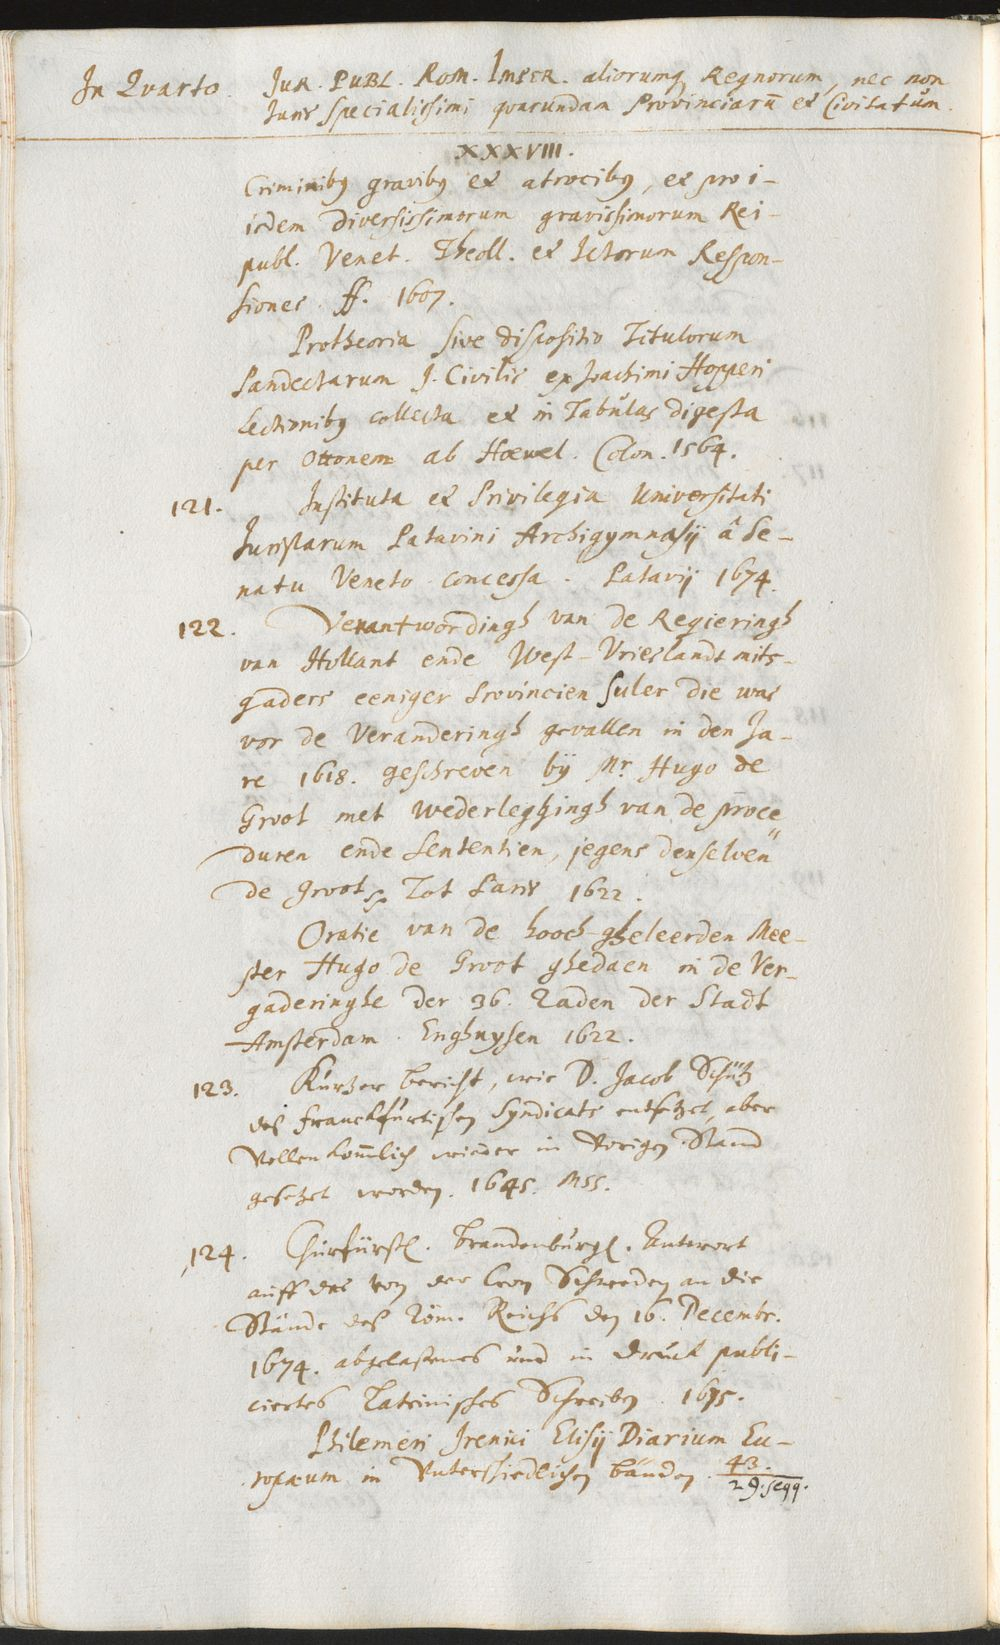 In Quarto. JUR. PUBL. ROM. IMPER. aliorumq Regnorum, nec non
Juris Specialissimi quarundam Provinciarū et Civitatum.
XXXVIII.
Criminibꝰ gravibꝰ et atrocibꝰ, et pro i-
isdem diversissimorum gravissimorum Rei-
publ. Venet. Theoll. et Ictorum Respon-
siones. ff. 1607.
Protheoria sive dispositio Titulorum
Pandectarum J. Civilis ex Joachimi Hopperi
Lectionibꝰ collecta et in Tabulas digesta
per Ottonem ab Hoevel. Colon. 1564.
121. Instituta et Privilegia Universitati
Juristarum Patavini Archigymnasij â Se-
natu Veneto concessa. Patavij 1674.
122. Verantwordingh van de Regieringh
van Hollant ende West-Vrieslandt mits-
gaders eeniger Provincien Suler die was
vor de Veranderingh gevallen in den Ja-
re 1618. geschreven bÿ Mr. Hugo de
Groot met wederleghingh van de proce
duren ende Sententien, jegens denselven
de Groot Tot Paris 1622.
Oratie van de hooch-gheleerden Mee-
ster Hugo de Groot ghedaen in de Ver-
gaderinghe der 36. Raden der Stadt
Amsterdam. Enghuysen 1622.
123. Kurtzer bericht, wie D. Jacob Schütz
des Franckfurtischen Syndicats entsetzet, aber
Vollenkom̄lich wieder in vorigen Stand
gesetzet worden. 1645. Mss.
124. Churfürstl. Brandenburgl. Antwort
auff das von der Cron Schweden an die
Stände deß Röm. Reichs den 16. Decembr.
1674. abgelaßenes und in druck publi-
ciertes Lateinisches Schreiben. 1675.
Philemeri Irenici Elisij Diarium Eu-
ropaeum in Unterschiedlichen bänden. 43.
29. seqq.